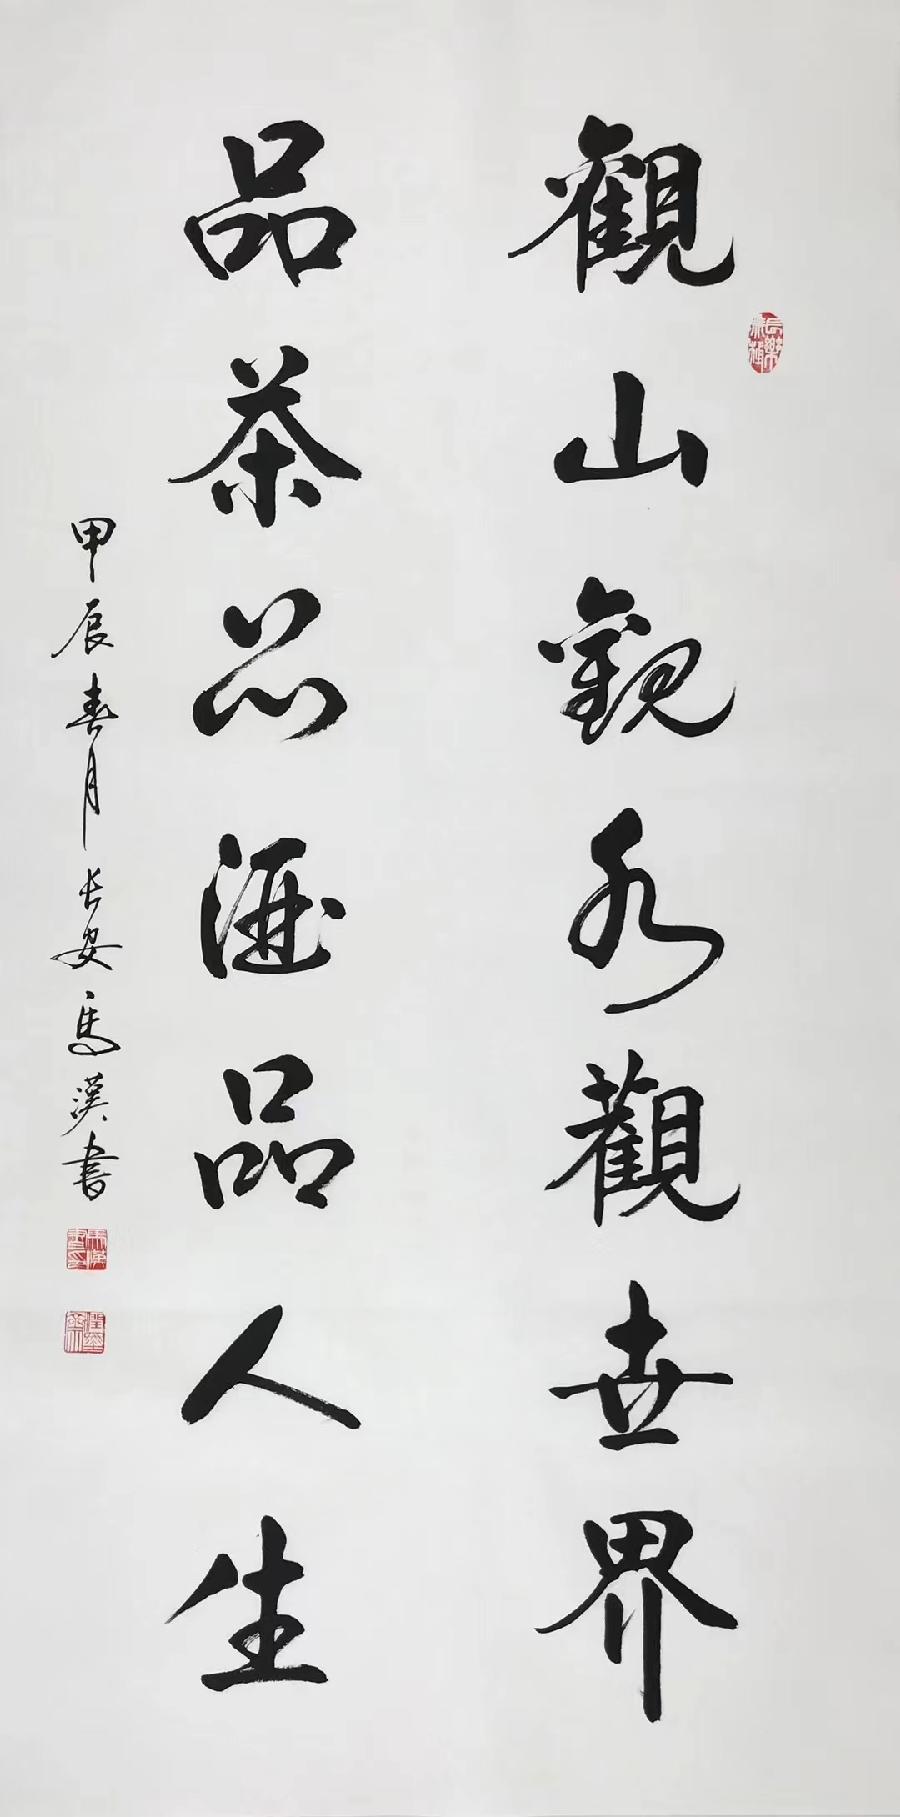 觀山觀水觀世界
品茶品酒品人生
甲辰春月長安馬漢書